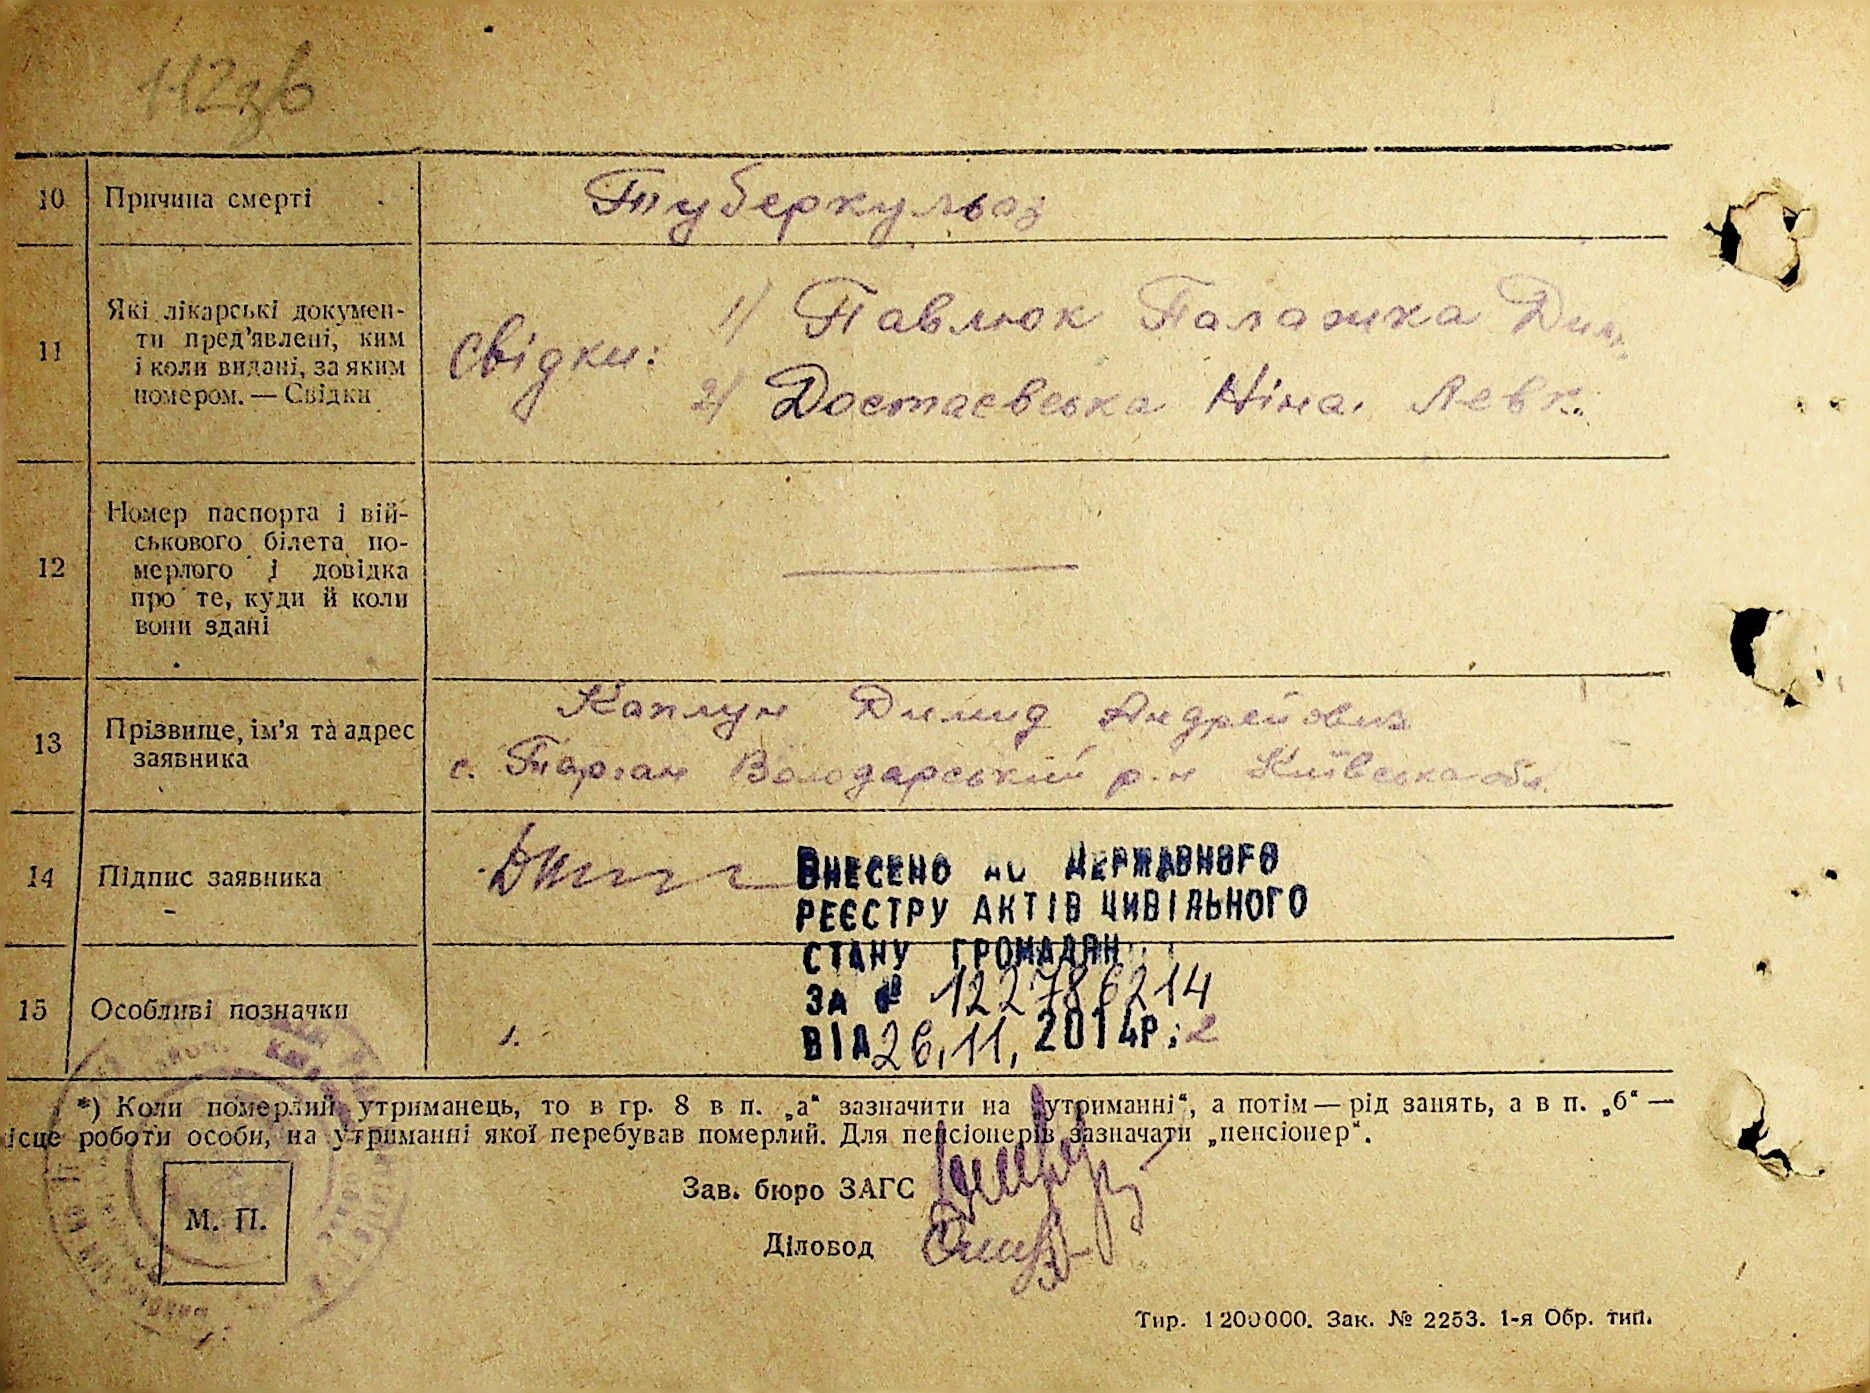 112зв
10 Причина смерті Туберкульоз
11 Які лікарські докумен-
ти пред'явлені, ким
і коли видані, за яким
номером. — Свідки
Свідки: 1) Павлюк Палажка Дим.
2) Достаєвська Ніна Левк.
12 Номер паспорта і вій-
ськового білета по-
мерлого і довідка
про те, куди й коли
вони здані
13 Прізвище, ім'я та адрес
заявника
Каплун Димид Андрейович
с. Тарган Володарський р-н Київська обл.
14 Підпис заявника
15 Особливі позначки
1.
ВНЕСЕНО ДО ДЕРЖАВНОГО
РЕЄСТРУ АКТІВ ЦИВІЛЬНОГО
СТАНУ ГРОМАДЯН
ЗА № 122786214
ВІД 26.11. 2014Р. 2
*) Коли померлий утриманець, то в гр. 8 в п. „а“ зазначити на „утриманні“, а потім — рід занять, а в п. „б“ —
ісце роботи особи, на утриманні якої перебував померлий. Для пенсіонерів зазначати „пенсіонер“.
М. П.
Зав. бюро ЗАГС
Діловод
Тир. 1200000. Зак. № 2253. 1-я Обр. тип.